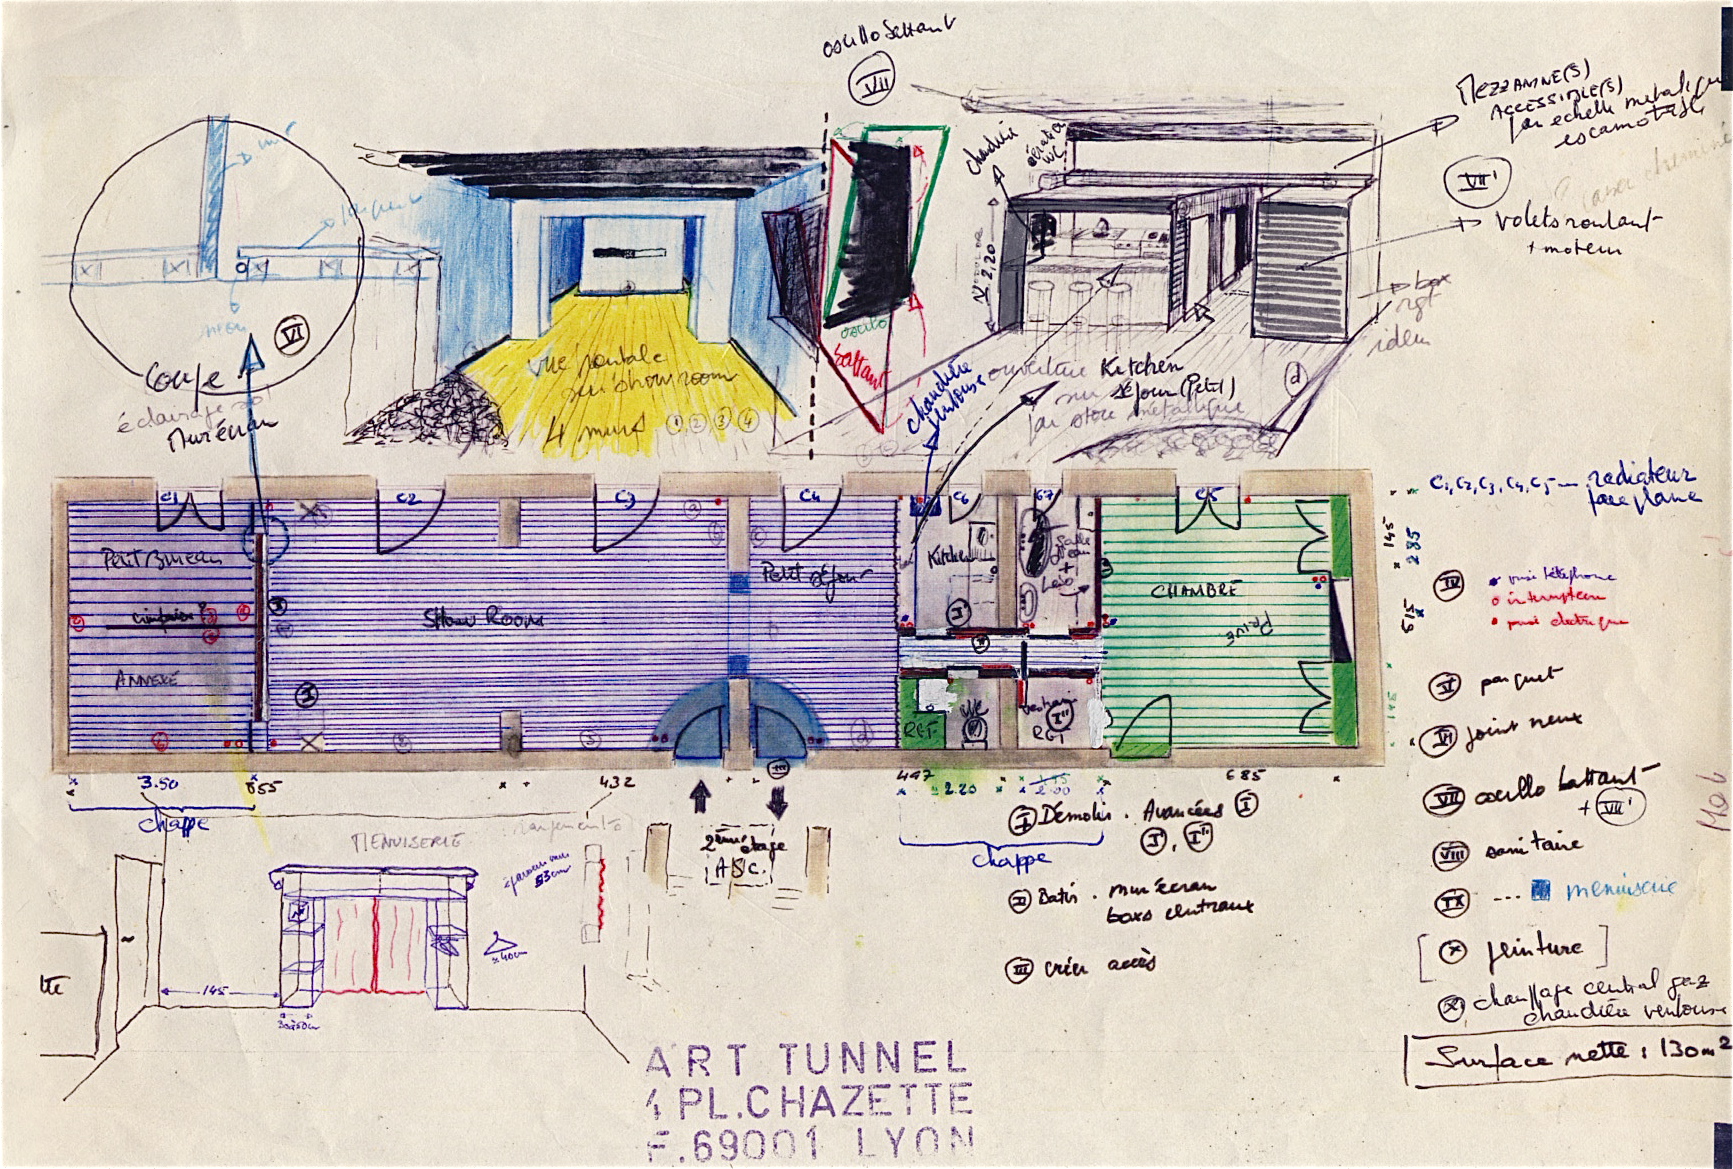 oscillo battant
VII
MEZZANINE(S)
ACCESSIBLE(S)
par echelle metalique
escamotable
VII'
volets roulant
+ moteur
box
rgt
idem
mur
parquet
neon
VI
Coupe
éclairage sol
Mur écran
vue frontale
sur showroom
4 murs 1 2 3 4
oscillo
battant
chaudière
aération
WC
2,20
chaudière
ventouse
ouverture Kitchen
sur séjour (Petit)
par store métallique
d
C1
C2
C3
C4
C6
C7
C5
C1, C2, C3, C4, C5 — radiateur
face plane
Petit Bureau
cimaise ?
ANNEXE
SHOW ROOM
Petit séjour
Kitchen
Salle
d'eau
+
CHAMBRE
PRIVÉ
I
I'
II
I''
RGT
WC
vestiaire
RGT
III
145
285
615
145
IV
prise téléphone
interrupteur
prise electrique
V parquet
VI joint neux
VII oscillo battant
+ VII'
VIII sanitaire
IX --- menuiserie
[ X peinture ]
XI chauffage central gaz
chaudière ventouse
Surface nette : 130 m2
3.50
655
432
497
2.20
685
chappe
chappe
I Démolir . Avancées I
I', I''
II Batir . mur écran
boxs centraux
III créer accès
2ème étage
ASC.
MENUISERIE
rangements
53cm
40cm
145
ART TUNNEL
4 PL.CHAZETTE
F.69001 LYON